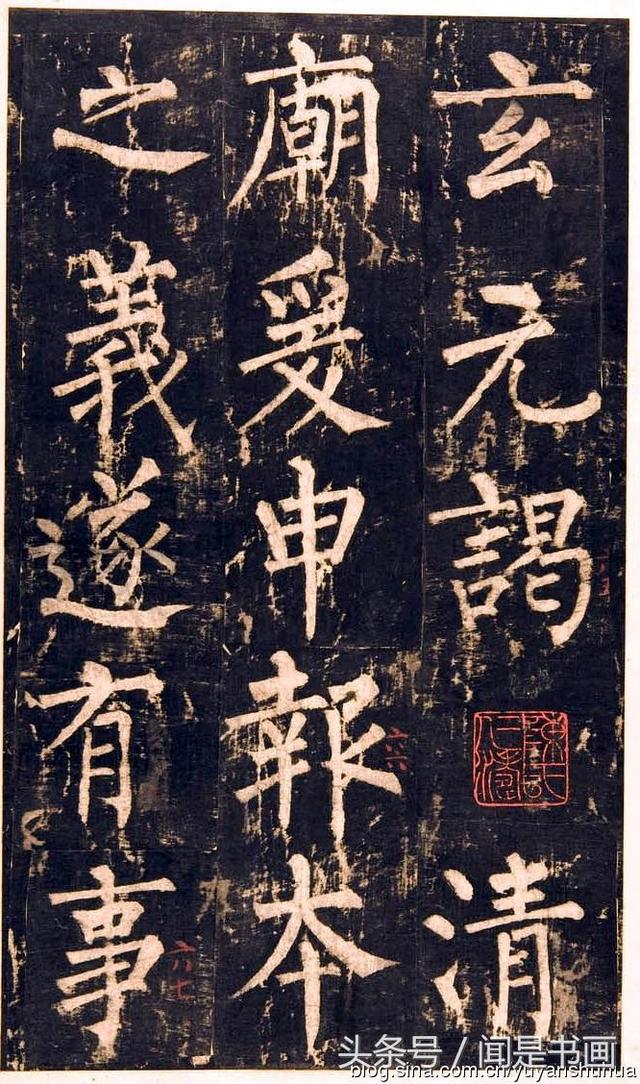 玄元謁清
廟爰申報本
之義遂有事
六六
六七
头条号 / 闻是书画
blog.sina.com.cn/yuyanshunua